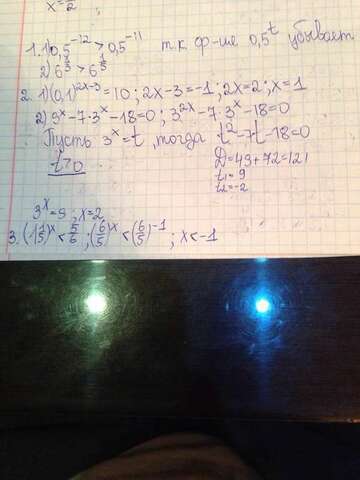 x = —/2 ;
1. 1) 0,5^-12 > 0,5^-11 т.к ф-ше 0,5^t убывает
2) 6^ > 6^
2. 1) (0,1)^2x-3 = 10 ; 2x-3=-1 ; 2x=2 ; x=1
2) 9^x - 7·3^x - 18=0 ; 3^2x - 7·3^x - 18=0
Пусть 3^x = t , тогда t^2 - 7t - 18=0
t>0 D = 49+72=121
t1 = 9
t2 = -2
3^x = 9 , x=2
3. (1 1/5)^x < 5/6 ; (6/5)^x < (6/5)^-1 ; x < -1